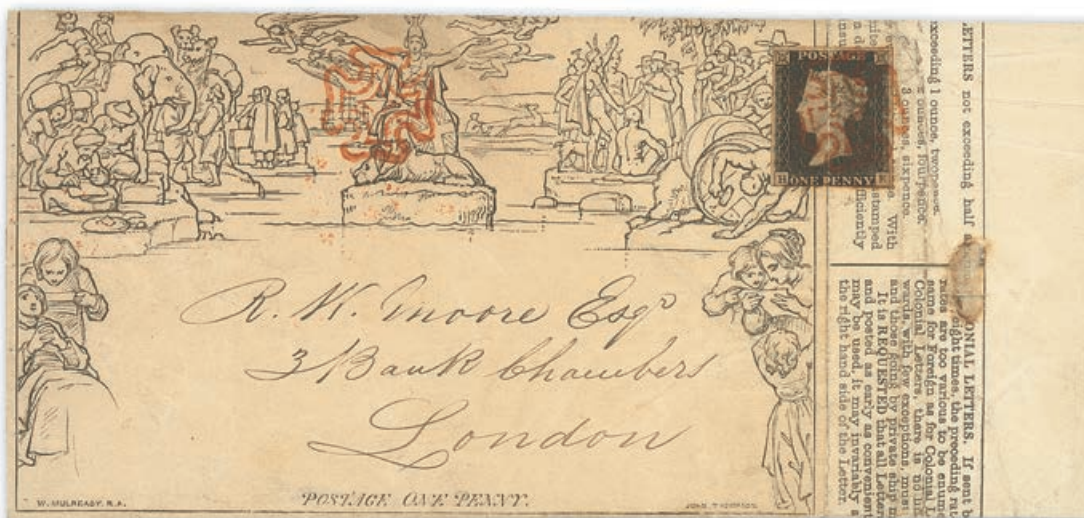 R. K. Moore Esqr
3 Bank Chambers
London
W. MULREADY. R.A.
POSTAGE ONE PENNY.
JOHN THOMPSON
POSTAGE
ONE PENNY
LETTERS not exceeding half
exceeding 1 ounce, twopence.
ounces, fourpence.
3 ounces, sixpence.
With
stamped
ONIAL LETTERS. If sent b
eight times, the preceding rat
rates are too various to be enume
same for Foreign as for Colonial L
Colonial Letters, there is no
wards, with few exceptions, must
and those going by private ship m
It is REQUESTED that all Letter
and posted as early as convenient
may be used, it may invariably
the right hand side of the Letter.